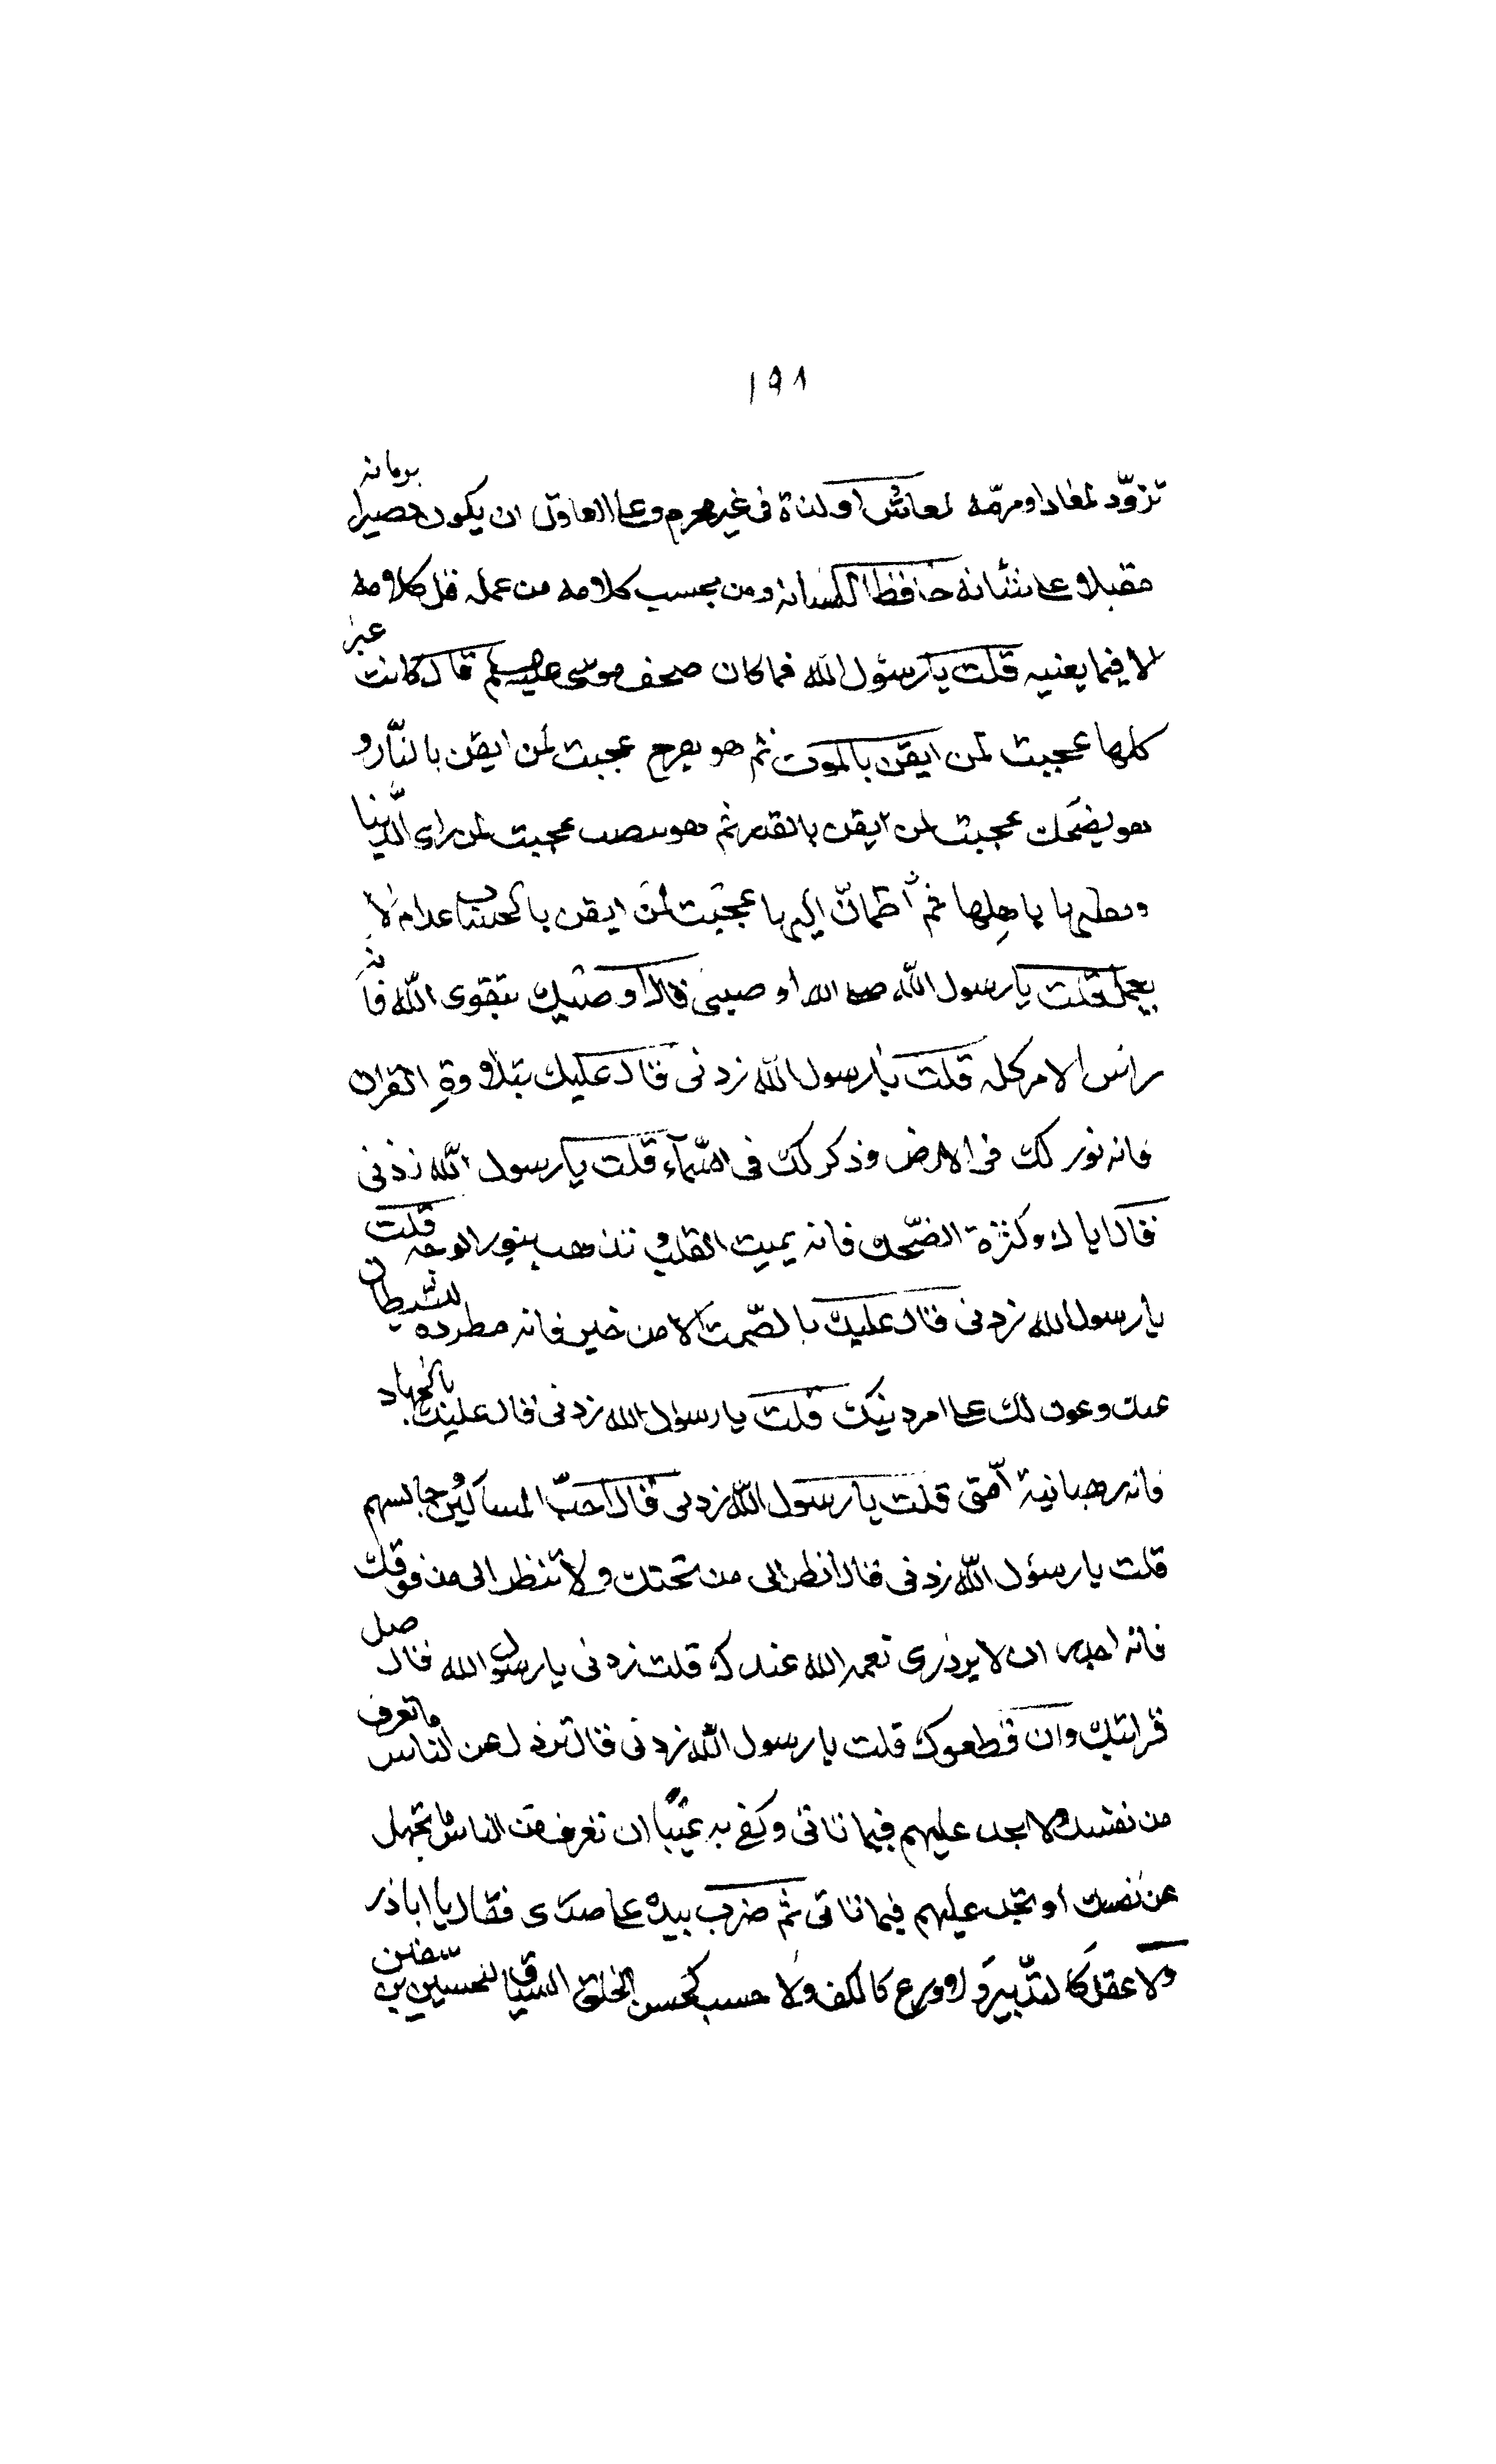 ١٩٨
تزوّد لمعاد او مرمّة لمعاش او لذة فى غير محرم وعلى العاقل ان يكون بصيرا بزمانه
مقبلا على شانه حافظا للسانه ومن يحسب كلامه من عمله قل كلامه
الا فيما يعنيه قلت يا رسول الله فما كان صحف موسى عليه السلم قال كانت عبر
كلها عجبت لمن ايقن بالموت ثم هو يفرح عجبت لمن ايقن بالنّار و
هو يضحك عجبت لمن ايقن بالقدر ثم هو ينصب عجبت لمن راى الدّنيا
وتقلبها باهلها ثم اطمأنّ اليها عجبت لمن ايقن بالحساب غدا ثم لا
يعمل قلت يا رسول الله صلى الله اوصينى قال اوصيك بتقوى الله فانه
راس الامر كله قلت يا رسول الله زدنى قال عليك بتلاوة القران
فانه نور لك فى الارض وذكر لك فى السّمآء قلت يا رسول الله زدنى
قال اياك وكثرة الضّحك فانه يميت القلب و تذهب بنور الوجه قلت
يا رسول الله زدنى قال عليك بالصّمت الا من خير فانه مطردة للشيطان
عنك وعون لك على امر دينك قلت يا رسول الله زدنى قال عليك بالجهاد
فانه رهبانية أمتى قلت يا رسول الله زدنى قال احبّ المساكين و جالسهم
قلت يا رسول الله زدنى قال انظر الى من تحتك ولا تنظر الى من فوقك
فانه اجدر ان لا يزدرى نعمة الله عندك قلت زدنى يا رسول الله قال صل
قرابتك وان قطعوك قلت يا رسول الله زدنى قال تردك عن الناس ما تعرف
من نفسك ولا تجد عليهم فيما تاتى وكفى به عيبا ان تعرف من الناس ما تجهل
من نفسك او تجد عليهم فيما تاتى ثم ضرب بيده على صدرى فقال يا اباذر
ولا عقل كالتدبير ولا ورع كالكف ولا حسب كحسن الخلق السياق للحسين بن سفين